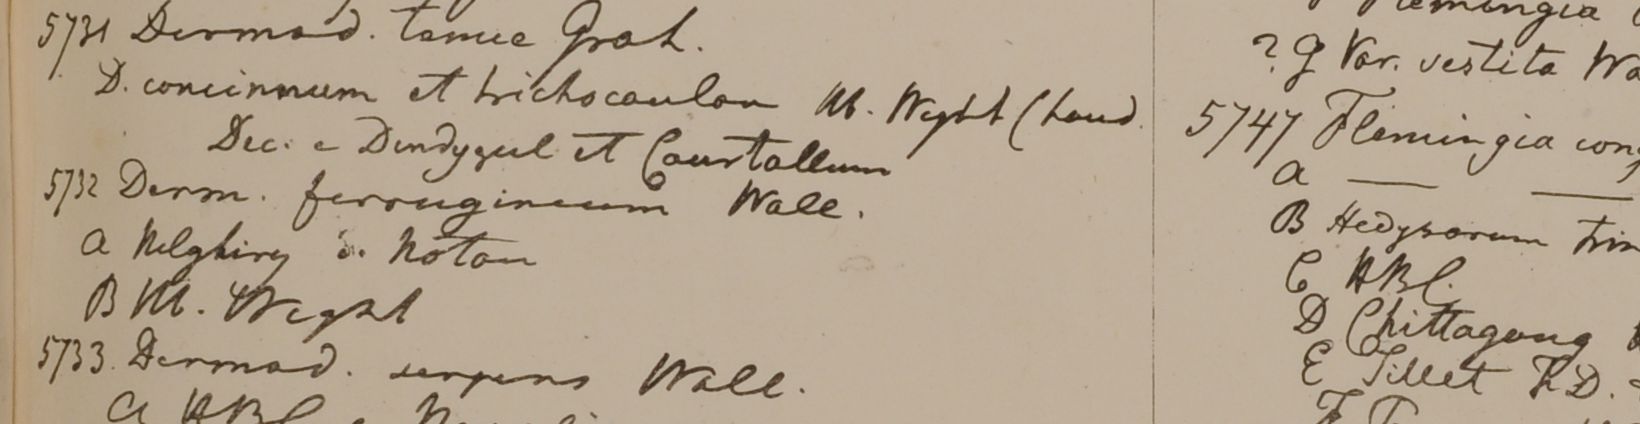 5731 Dermad. tenue Grah.
D. concinnum et trichocaulon M. Wight (haud
Dec. e Dendygul et Courtallum
5732 Derm. ferrugineum Wall.
a Nelghiry d. Noton
B M. Wight
5733 Dermad. serpens Wall.
a HBC e
Flemingia
? g Var. vestita Wa
5747 Flemingia cong
a — —
B Hedysarum trin
C HBC.
D Chittagong
E Sillet F.D.